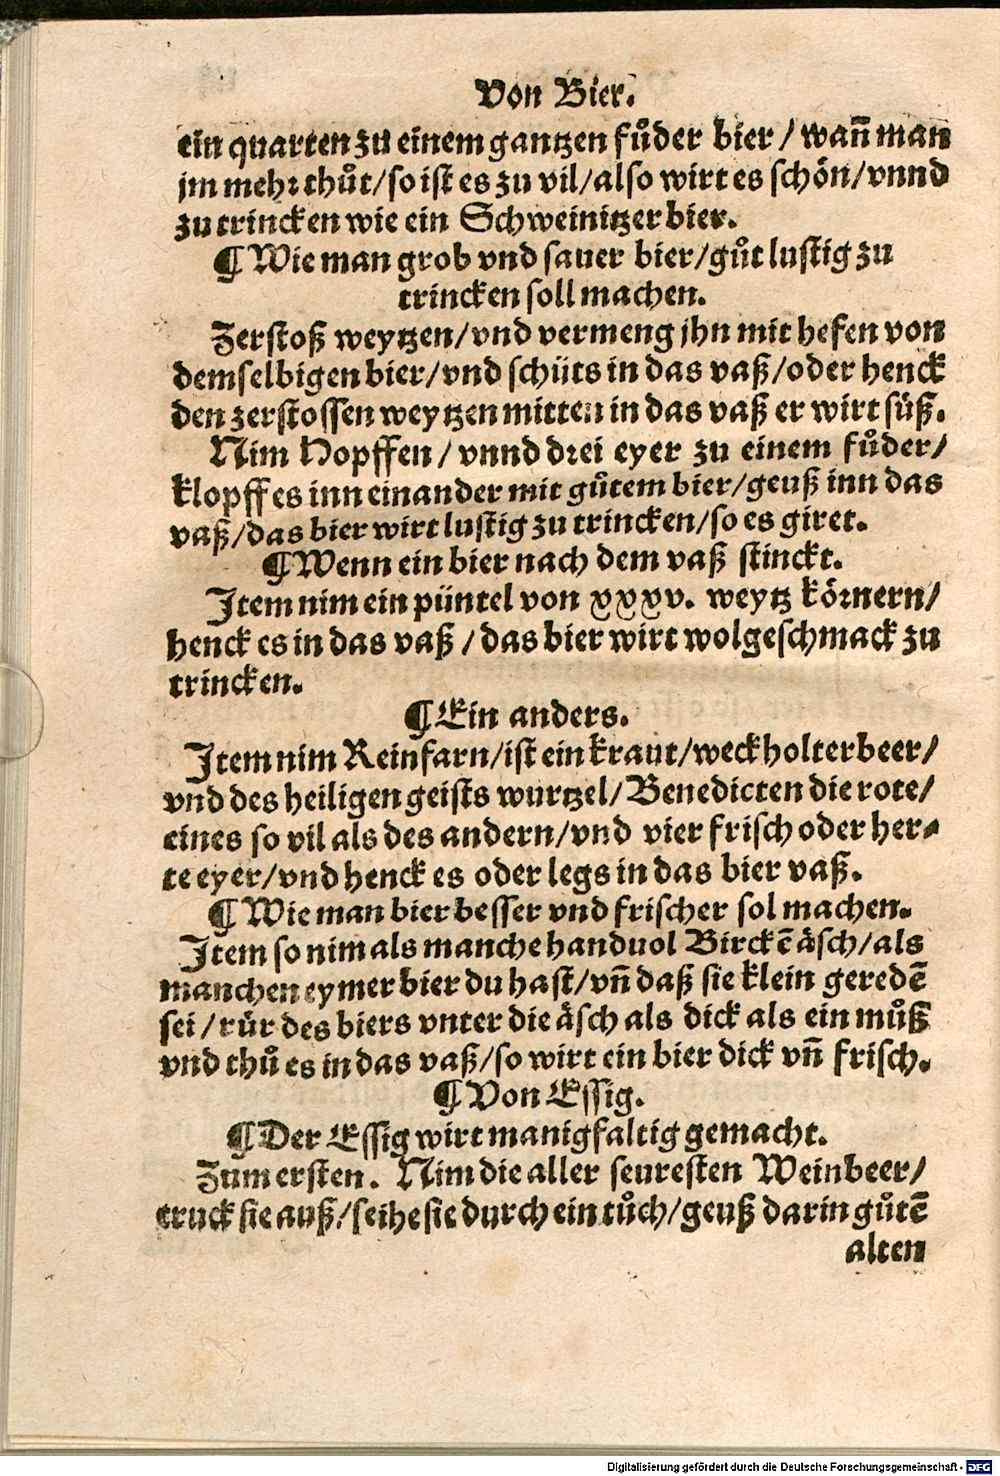 Von Bier.
ein quarten zu einem gantzen fůder bier / wañ man
jm mehr thůt/so ist es zu vil/also wirt es schön/vnnd
zu trincken wie ein Schweinitzer bier.
¶ Wie man grob vnd sauer bier/gůt lustig zu
trincken soll machen.
Zerstoß weytzen/vnd vermeng jhn mit hefen von
demselbigen bier/vnd schüts in das vaß/oder henck
den zerstossen weytzen mitten in das vaß er wirt süß.
Nim Hopffen/ vnnd drei eyer zu einem fůder/
klopff es inn einander mit gůtem bier/geuß inn das
vaß/das bier wirt lustig zu trincken/so es giret.
¶ Wenn ein bier nach dem vaß stinckt.
Item nim ein püntel von xxxv. weytz körnern/
henck es in das vaß / das bier wirt wolgeschmack zu
trincken.
¶ Ein anders.
Item nim Reinfarn/ist ein kraut/weckholterbeer/
vnd des heiligen geists wurtzel/ Benedicten die rote/
eines so vil als des andern/vnd vier frisch oder her⸗
te eyer/vnd henck es oder legs in das bier vaß.
¶ Wie man bier besser vnd frischer sol machen.
Item so nim als manche handuol Birckē äsch/als
manchen eymer bier du hast/vñ daß sie klein geredē
sei / rür des biers vnter die äsch als dick als ein můß
vnd thů es in das vaß/so wirt ein bier dick vñ frisch.
¶ Von Essig.
¶ Der Essig wirt manigfaltig gemacht.
Zum ersten. Nim die aller seuresten Weinbeer/
truck sie auß/seihe sie durch ein tůch/geuß darin gůtē
alten
Digitalisierung gefördert durch die Deutsche Forschungsgemeinschaft - DFG